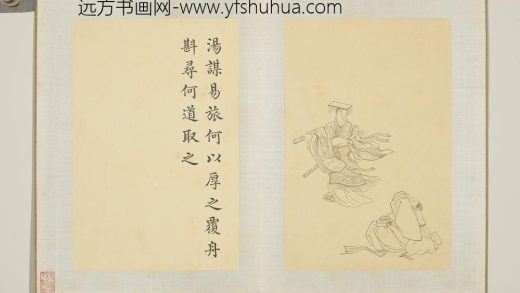 远方书画网-www.yfshuhua.com
湯謀易旅何以厚之覆舟
斟尋何道取之